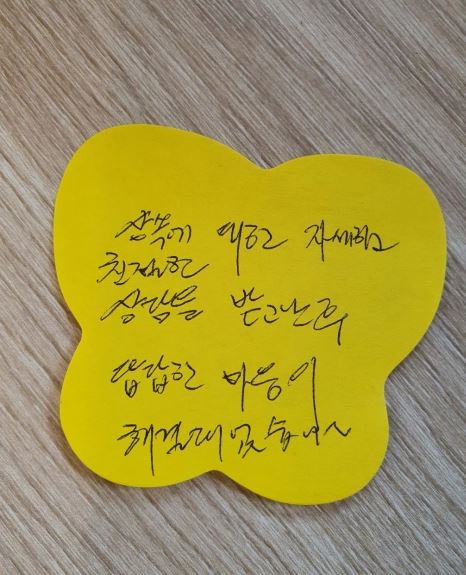 상속에 대한 자세하고
친절한
상담을 받고난 후
답답한 마음이
해결되었습니다